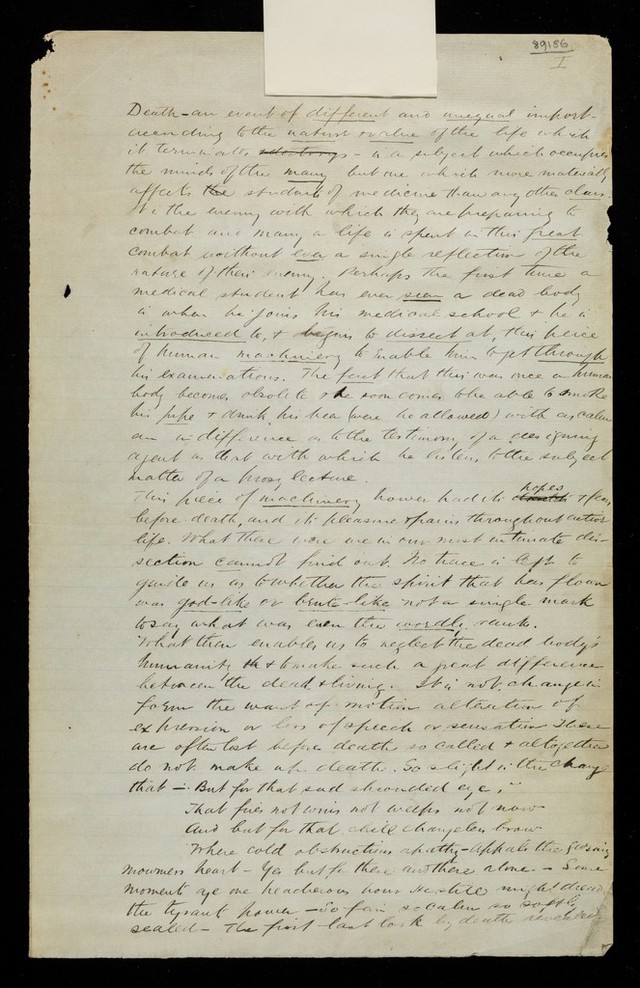 89156
I
Death - an event of different and unequal import -
according to the nature or value of the life which
it terminates - is a subject which occupies
the minds of the many but one which more materially
affects the students of medicine than any other class.
It is the enemy with which they are preparing to
combat and many a life is spent in this great
combat without even a single reflection of the
nature of their enemy. Perhaps the first time a
medical student has ever seen a dead body
is when he joins his medical school & he is
introduced to, & begins to dissect at, this piece
of human machinery to enable him to get through
his examinations. The fact that this was once a human
body becomes obsolete & he soon comes to be able to smoke
his pipe & drink his beer (were he allowed) with as calm
an indifference as to the testimony of a designing
agent as that with which he listens to the subject
matter of a prosy lecture.
This piece of machinery however had its hopes & fears
before death, and its pleasure & pains throughout active
life. What these were we in our most intimate dis-
section cannot find out. No trace is left to
guide us as to whether the spirit that has flown
was god-like or brute-like not a single mark
to say what was even the wordly rank.
What then enables us to neglect the dead body's
humanity & to make such a great difference
between the dead & living. It is not change in
form the want of motion alteration of
expression or loss of speech or sensation These
are often lost before death so called & altogether
do not make up death. So slight is the change
that - But for that sad shrouded eye,
That fires not wins not weeps not now
And but for that chill changeless brow
Where cold obstructions apathy - appals the gazing
mourners heart - Yes but for these and these alone - Some
moments ye one treacherous hour He still might doubt
the tyrants power - So fair so calm so softly
sealed - The first last look by death revealed